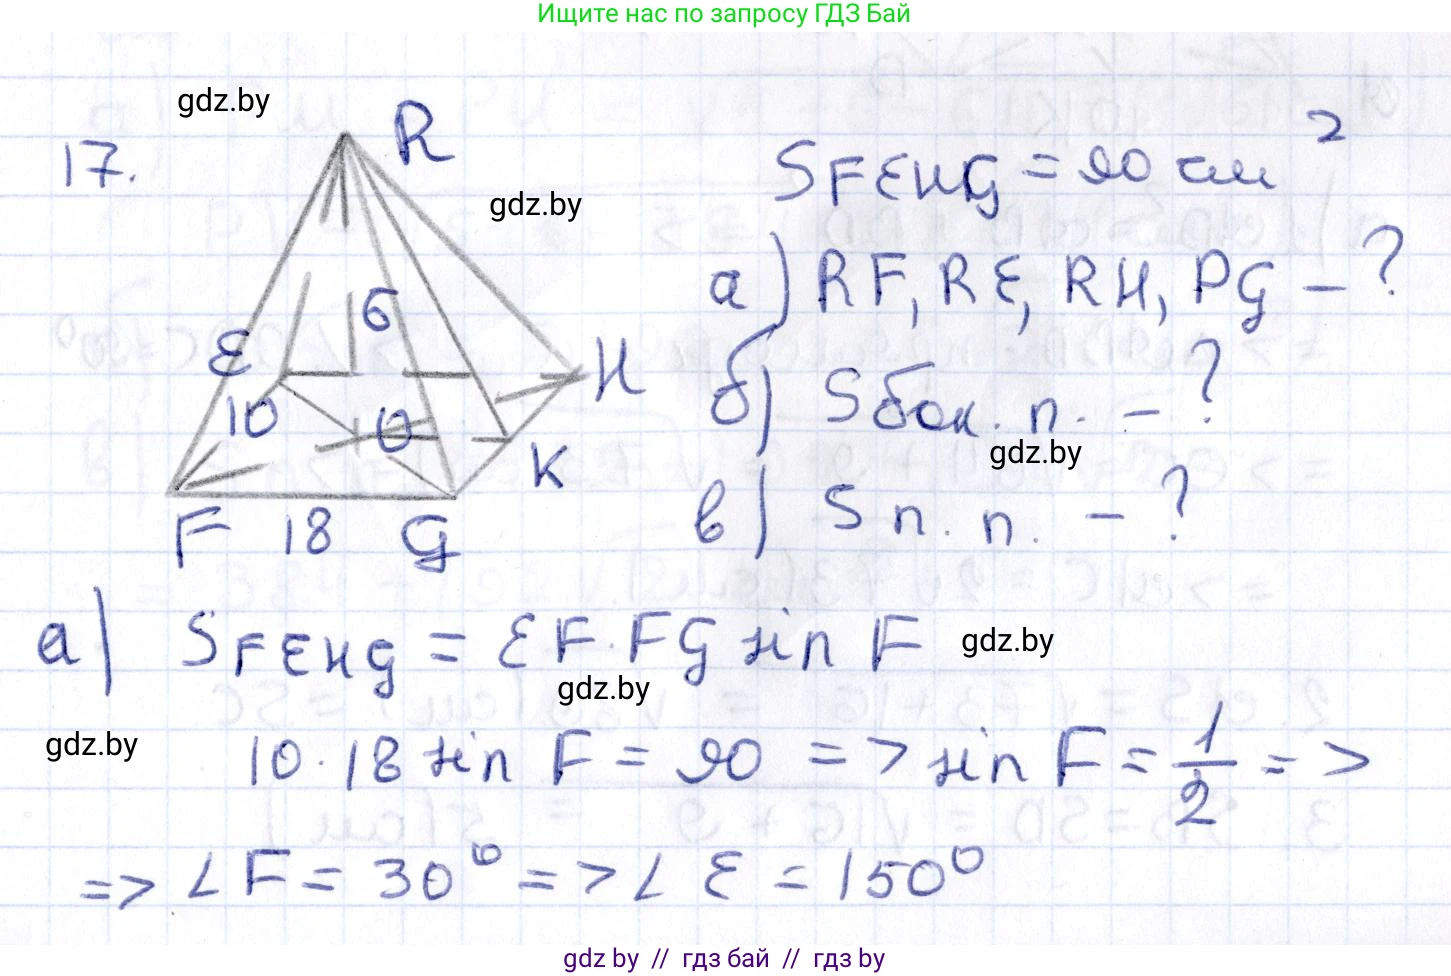 Ищите нас по запросу ГДЗ Бай
gdz.by
17.
R
gdz.by
S FEHG = 90 см²
6
а) RF, RE, RH, PG - ?
E
H
10
O
б) S бок. п. - ?
gdz.by
K
в) S п. п. - ?
F 18 G
а) S FEHG = EF · FG sin F
gdz.by
gdz.by
gdz.by
10 · 18 sin F = 90 => sin F = 1/2 =>
=> ∠F = 30° => ∠E = 150°
gdz.by // гдз бай // гдз by